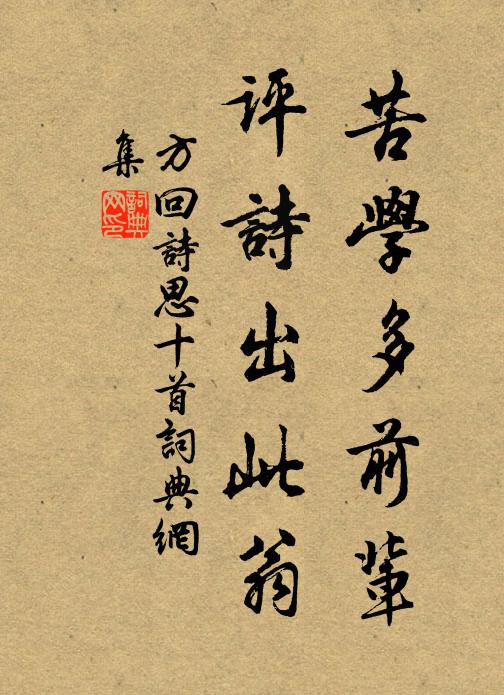 苦學多前輩
評詩出此翁
方回詩思十首詞典網
集
詞典
网印